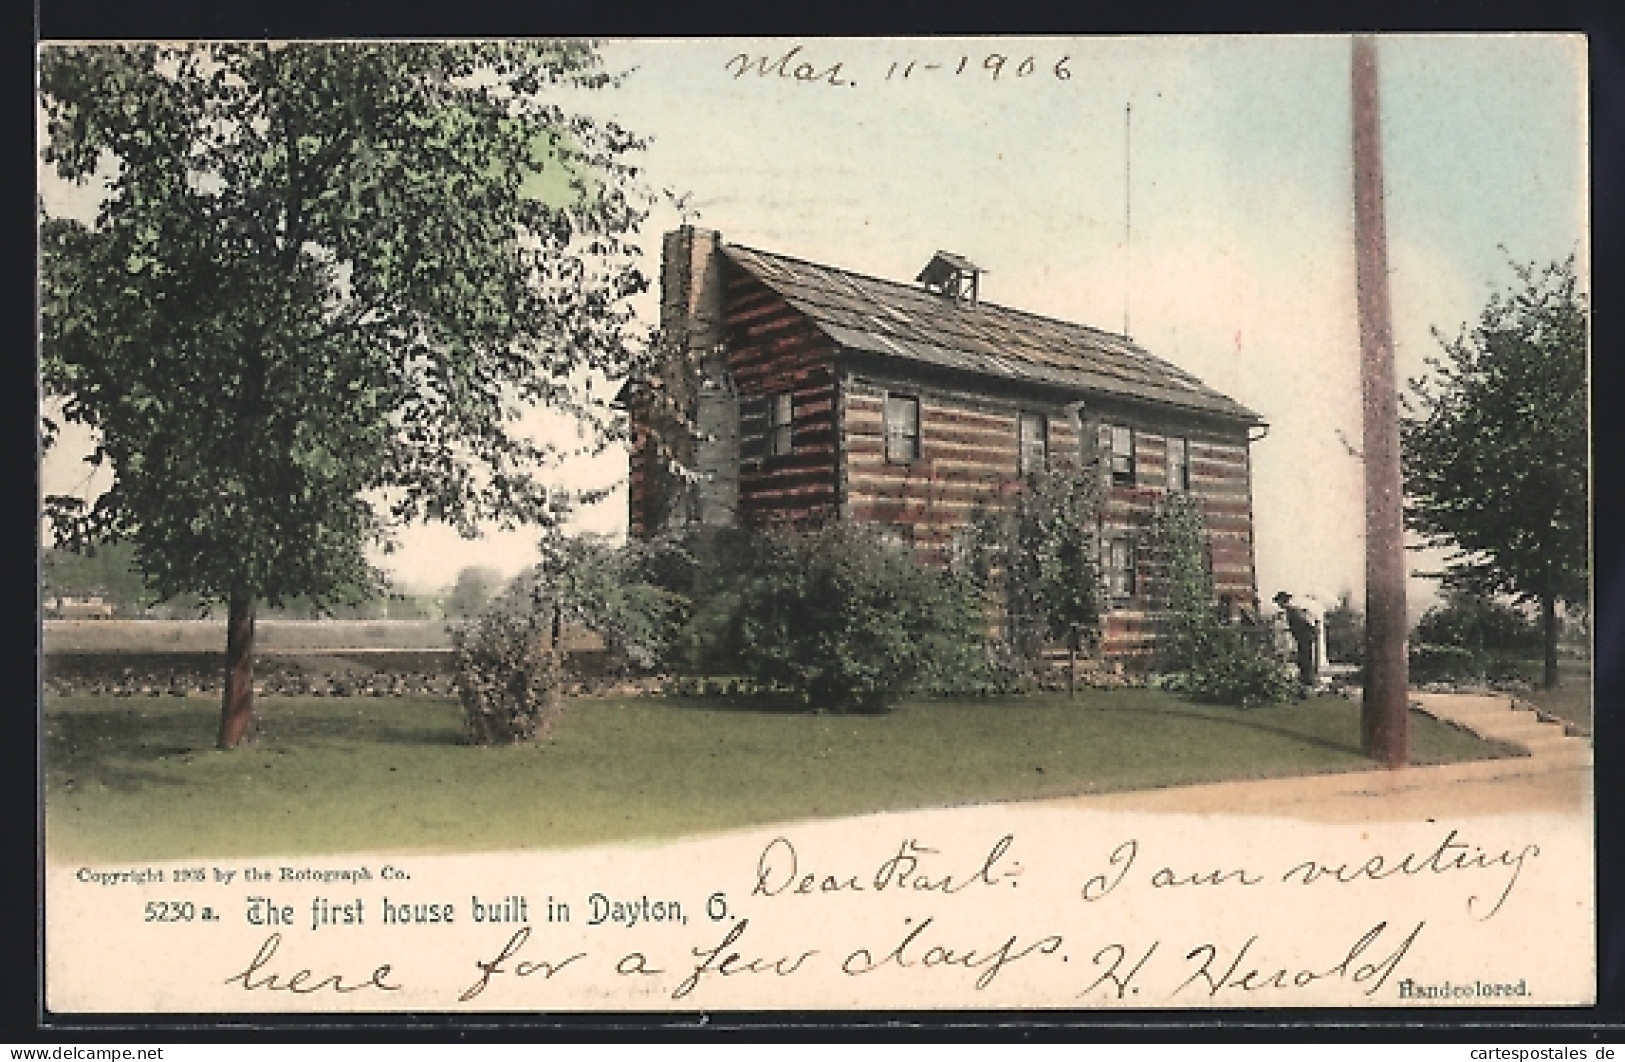 Mar. 11-1906
Copyright 1905 by the Rotograph Co.
Dear Karl:- I am visiting
5230 a. The first house built in Dayton, O.
here for a few days. H. Herold
Handcolored.
delcampe.net
cartespostales de